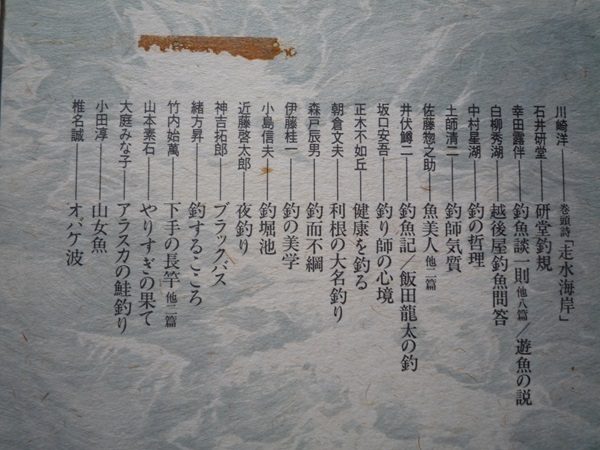 川崎洋――巻頭詩「走水海岸」
石井研堂――研堂釣規
幸田露伴――釣魚談一則 他八篇／遊魚の説
白柳秀湖――越後屋釣魚問答
中村星湖――釣の哲理
土師清二――釣師気質
佐藤惣之助――魚美人 他二篇
井伏鱒二――釣魚記／飯田龍太の釣
坂口安吾――釣り師の心境
正木不如丘――健康を釣る
朝倉文夫――利根の大名釣り
森戸辰男――釣而不綱
伊藤桂一――釣の美学
小島信夫――釣堀池
近藤啓太郎――夜釣り
神吉拓郎――ブラックバス
緒方昇――釣するこころ
竹内始萬――下手の長竿 他二篇
山本素石――やりすぎの果て
大庭みな子――アラスカの鮭釣り
小田淳――山女魚
椎名誠――オバケ波